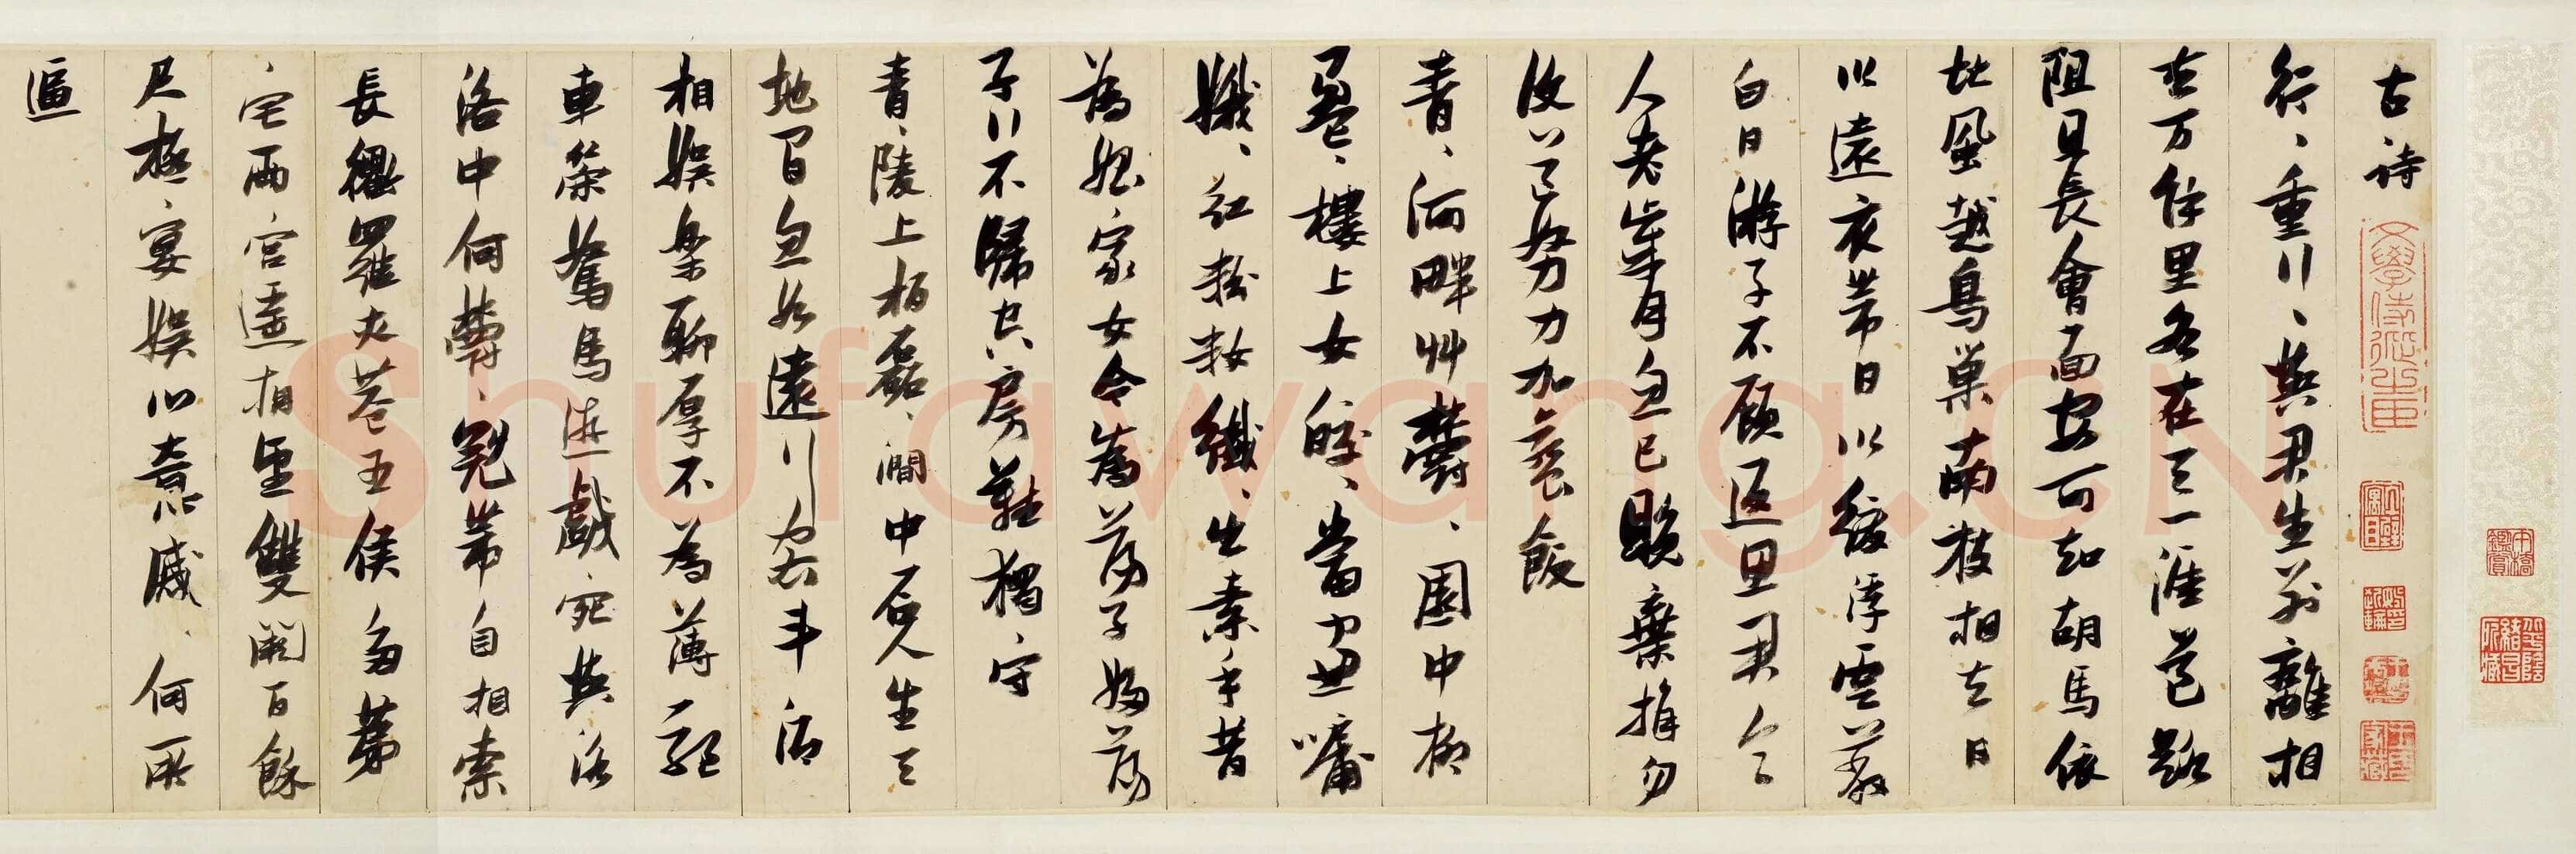 古诗
行、重行、與君生别離相
去万餘里各在天一涯道路
阻且長會面安可知胡馬依
北風越鳥巢南枝相去日
以遠衣帶日以緩浮雲蔽
白日游子不顾返思君令
人老歲月忽已晚棄捐勿
復道努力加餐飯
青、河畔艸鬱、園中柳
盈、樓上女皎、當窗牖
娥、红粉妝纖、出素手昔
為娼家女今為蕩子婦蕩
子行不歸空房難獨守
青、陵上柏磊、澗中石人生天
地間忽如遠行客斗酒
相娱樂聊厚不為薄驅
車策駑馬遊戲宛與洛
洛中何鬱、冠帶自相索
長衢羅夾巷王侯多第
宅兩宫遥相望雙闕百餘
尺極、宴娱心意戚、何所
逼
文學侍從之臣
Shufawang.CN